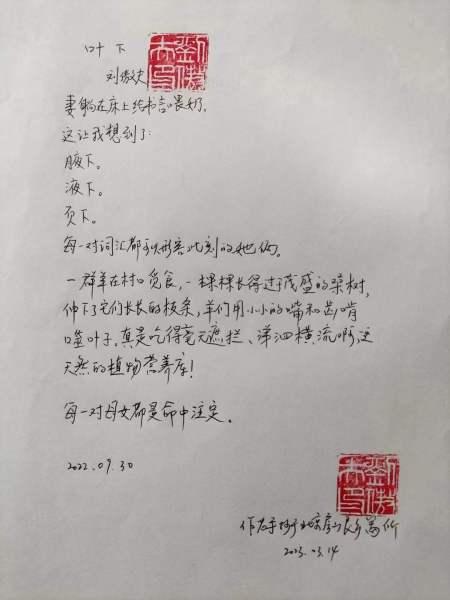 叶下
刘傲夫
妻躺在床上给书言喂奶。
这让我想到了:
腋下。
液下。
页下。
每一对词汇都可以形容此刻的她俩。
一群羊在村口觅食,一棵棵长得过于茂盛的桑树,
伸下了它们长长的枝条,羊们用小小的嘴和齿啃
噬叶子,真是吃得毫无遮拦、涕泗横流啊,这
天然的植物营养库!
每一对母女都是命中注定。
2022.09.30
劉傲夫印
作者手抄于北京房山长阳寓所
2023.03.14